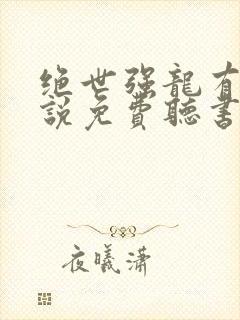 绝世强龍有
説免費聽書
夜曦潇